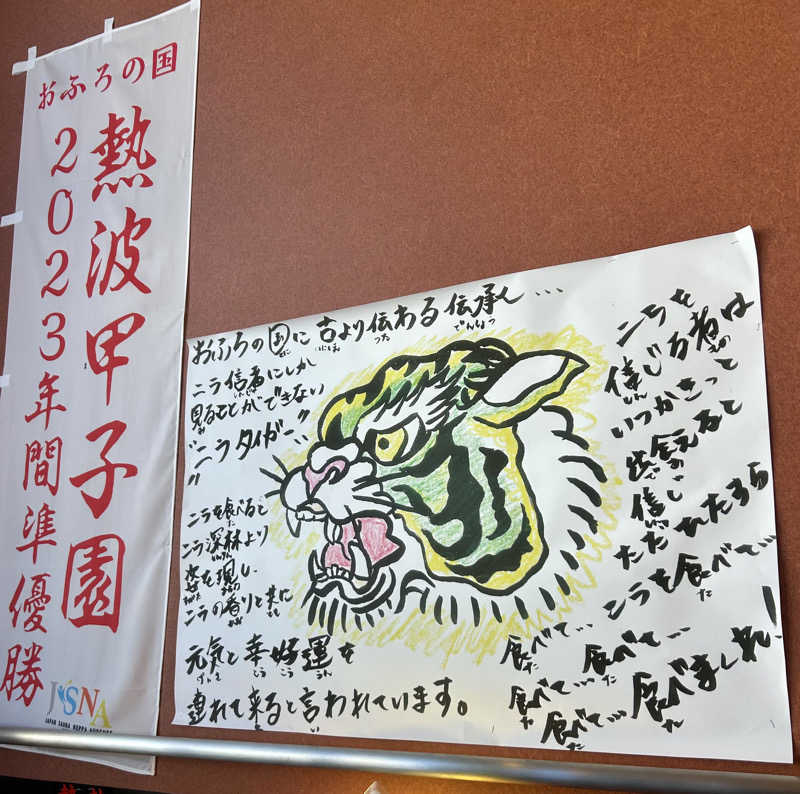 おふろの国
熱波甲子園
2023年間準優勝
JSNA
おふろの国に古より伝わる伝承〜…
くに いにしえ つた でんしょう
ニラ信者にしか
見ることができない
み
"ニラタイガー"
ニラを食べると
た
ニラ深林より
姿を現し
ニラの香りと共に
元気と幸 好運を
連れて来ると言われています。
ニラを
信じる者は
しん もの
いつかきっと
出会えると
信じ
しん
ただひたすら
ニラを食べて…
た
食べて… 食べて…
た た
食べて… 食べて… 食べまくれ!
た た た